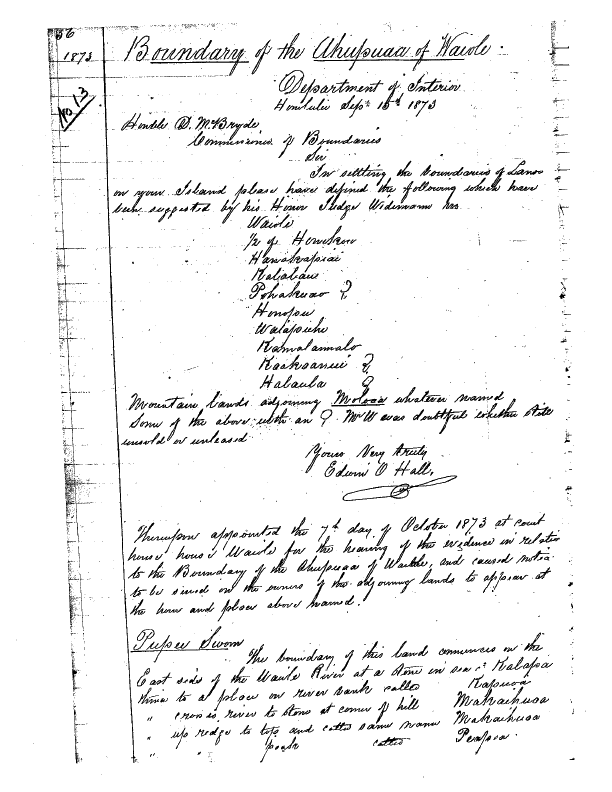 56
1873 Boundary of the Ahupuaa of Waiole.
No 13
Department of Interior
Honolulu Sept 15th 1873
Honble D. McBryde
Commissioner of Boundaries
Sir
In settling the boundaries of Lands
on your Island please have defined the following which have
been suggested by his Honor Judge Widemann
Waiole
1/2 of Honokou
Hanakapiai
Kalalau
Pohakuao ?
Honopu
Walapuhi
Kamalamalo
Kaakaanui ?
Halaula ?
Mountain lands adjoining Moloaa whatever named
Some of the above with an ? Mr W was doubtful whether still
unsold or unleased
Yours Very truly
Edwin O Hall.
Thereupon appointed the 7th day of October 1873 at court
house house Waiole for the hearing of the evidence in relation
to the Boundary of the Ahupuaa of Waiole, and caused notice
to be served on the owners of the adjoining lands to appear at
the hour and place above named.
Pupeu Sworn
The boundary of this land commences on the
East side of the Waiole River at a stone in sea Kalapa
thence to a place on river bank called Kapuoa
" crosses river to stone at corner of hill Makaihuoa
" up ridge to top and called same name Makaihuoa
" " peak called